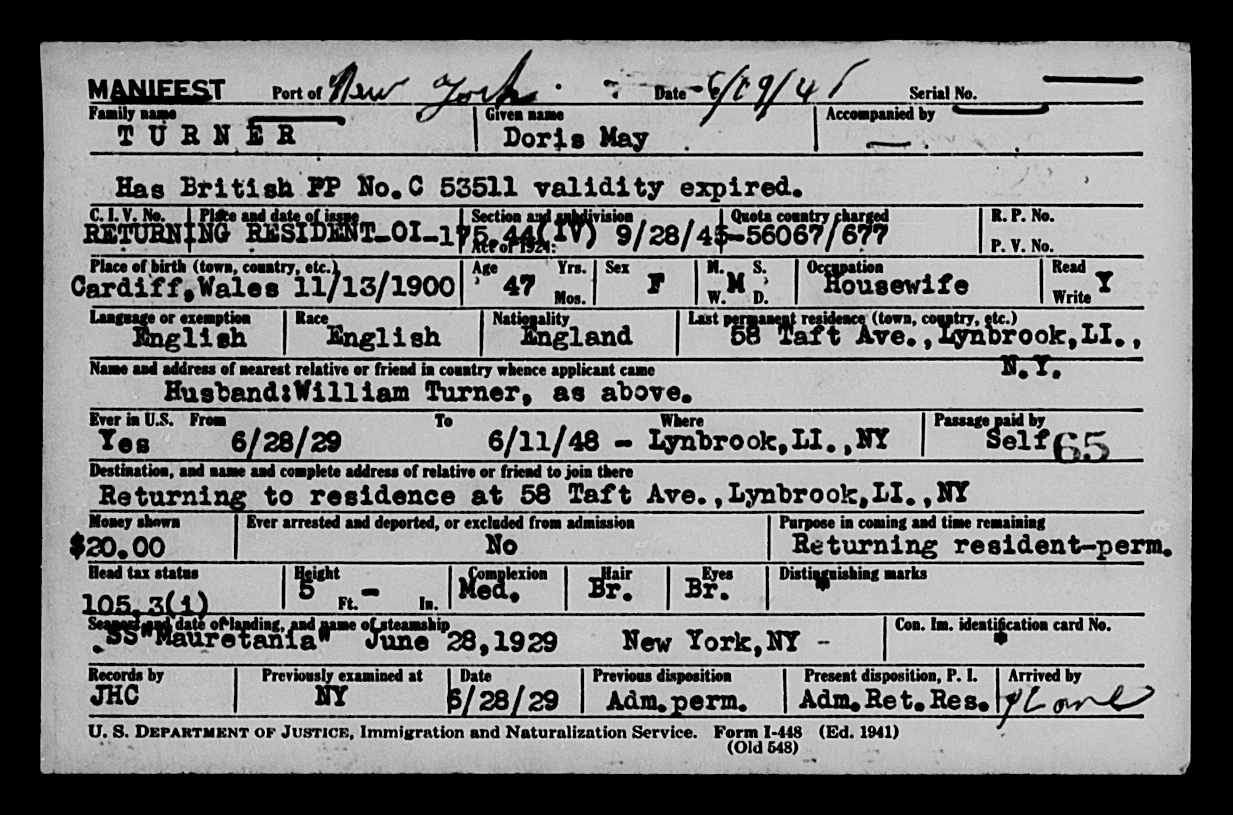 MANIFEST Port of New York Date Serial No.
Family name Given name Accompanied by
TURNER Doris May —
Has British PP No.C 53511 validity expired.
C. I. V. No. Place and date of issue Section and subdivision Quota country charged R. P. No.
RETURNING RESIDENT-OI-175.44(IV) 9/28/45-56067/677
Act of 1924: P. V. No.
Place of birth (town, country, etc.) Age Yrs. Sex M. S. Occupation Read
Cardiff,Wales 11/13/1900 47 F M Housewife Y
Mos. W. D. Write
Language or exemption Race Nationality Last permanent residence (town, country, etc.)
English English England 58 Taft Ave.,Lynbrook,LI.,
N.Y.
Name and address of nearest relative or friend in country whence applicant came
Husband:William Turner, as above.
Ever in U.S. From To Where Passage paid by
Yes 6/28/29 6/11/48 - Lynbrook,LI.,NY Self 65
Destination, and name and complete address of relative or friend to join there
Returning to residence at 58 Taft Ave.,Lynbrook,LI.,NY
Money shown Ever arrested and deported, or excluded from admission Purpose in coming and time remaining
$20.00 No Returning resident-perm.
Head tax status Height Complexion Hair Eyes Distinguishing marks
105.3(i) 5 Ft. - In. Med. Br. Br.
Seaport and date of landing, and name of steamship Con. Im. identification card No.
SS"Mauretania" June 28,1929 New York,NY -
Records by Previously examined at Date Previous disposition Present disposition, P. I. Arrived by
JHC NY 6/28/29 Adm.perm. Adm.Ret.Res.
U. S. DEPARTMENT OF JUSTICE, Immigration and Naturalization Service. Form I-448 (Ed. 1941)
(Old 548)